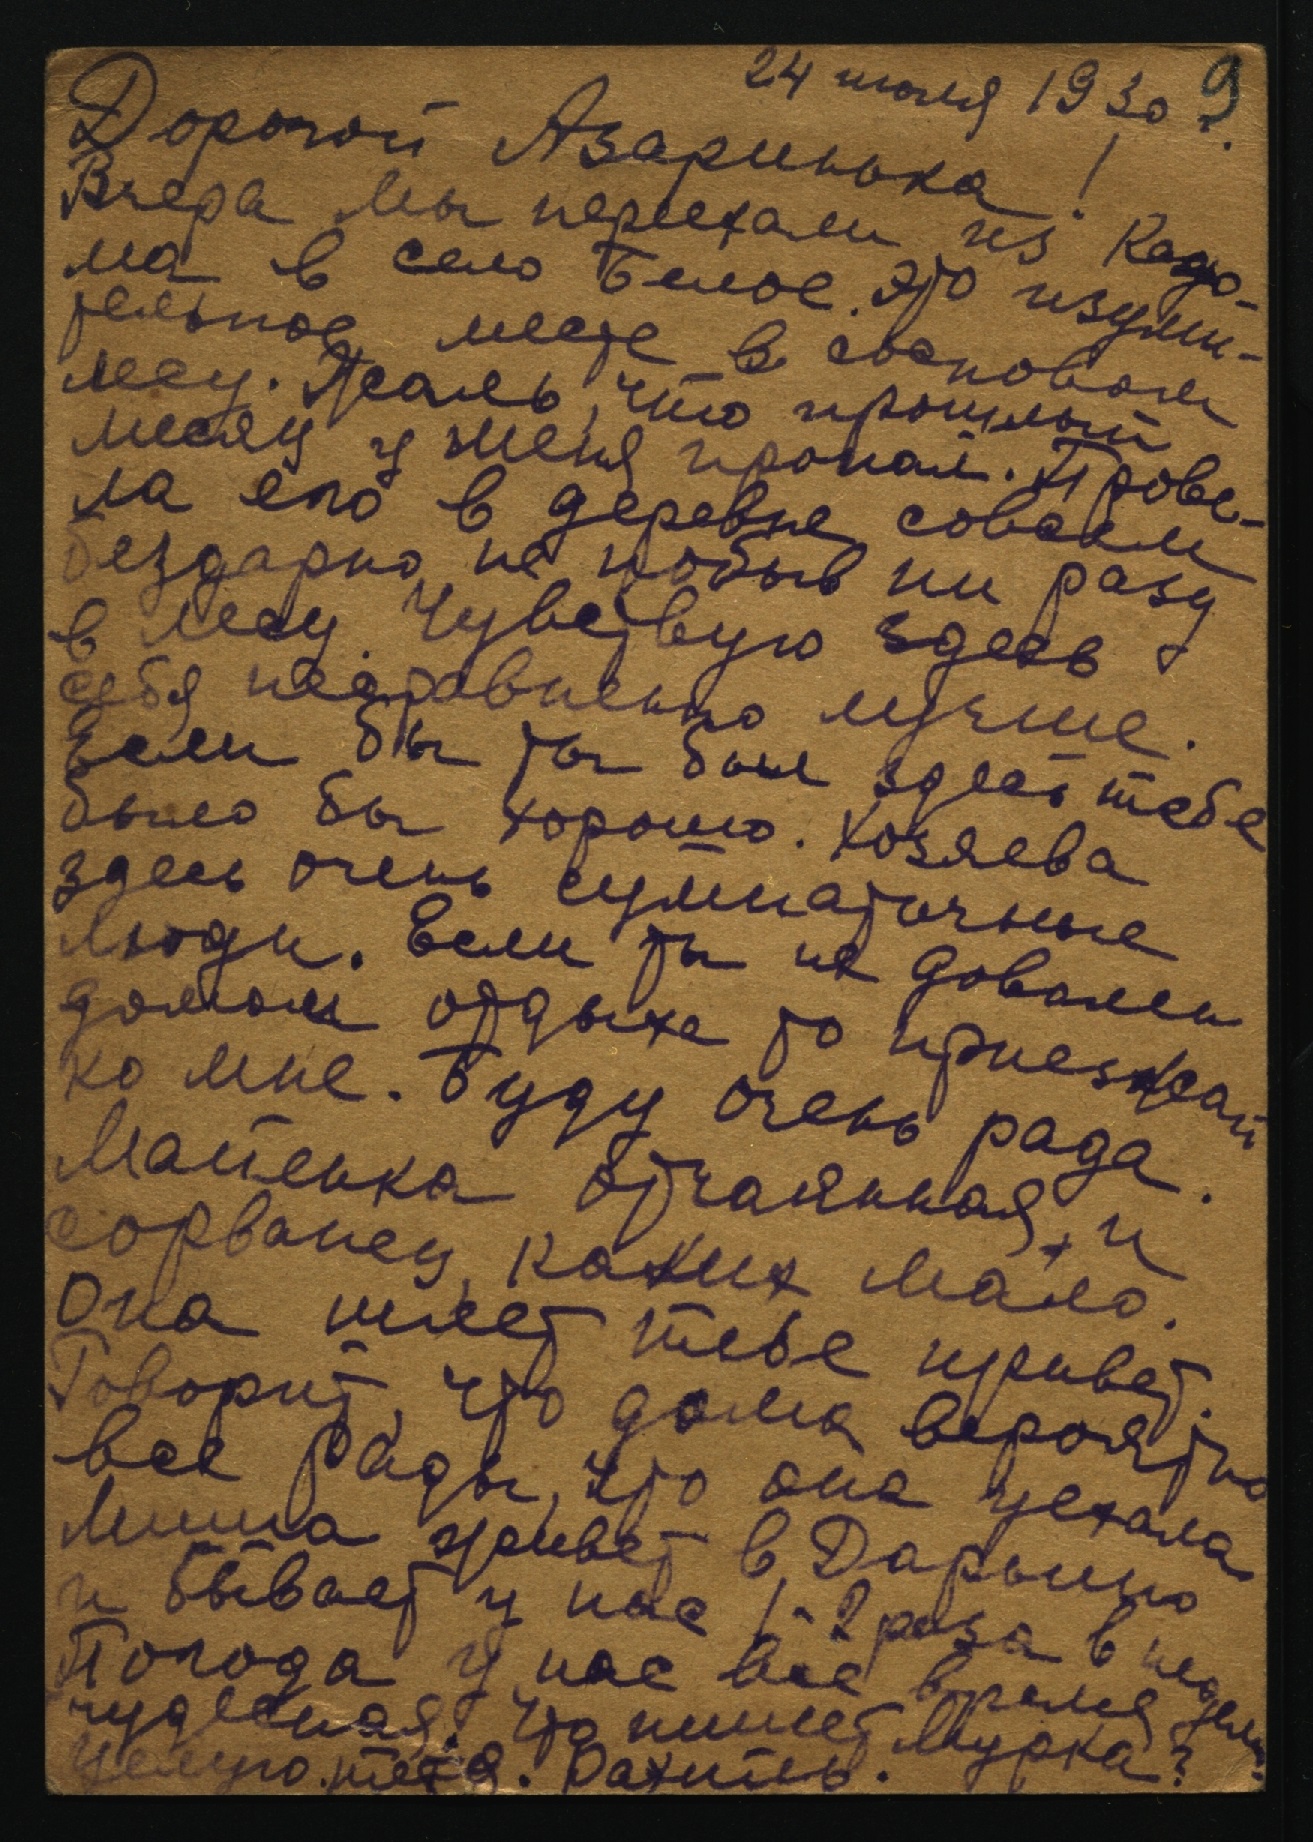 24 июля 1930 г.
9
Дорогой Азаринька!
Вчера мы переехали из Кадо-
ма в село Белое. Это изуми-
тельное место в сосновом
лесу. Жаль, что прошлый
месяц у меня пропал. Прове-
ла его в деревне совсем
бездарно не побыв ни разу
в лесу. Чувствую здесь
себя несравненно лучше.
Если бы ты был здесь тебе
было бы хорошо. Хозяева
здесь очень симпатичные
люди. Если ты не доволен
домом отдыха то приезжай
ко мне. Буду очень рада.
Майенька отчаянная и
сорванец, каких мало.
Она шлет тебе привет.
Говорит, что дома вероятно
все рады, что она уехала
Миша живет в
и бывает у нас 1-2 раза в неделю.
Погода у нас все время
чудесная. Что пишет Мурка?
Целую. тетя. Рахиль.